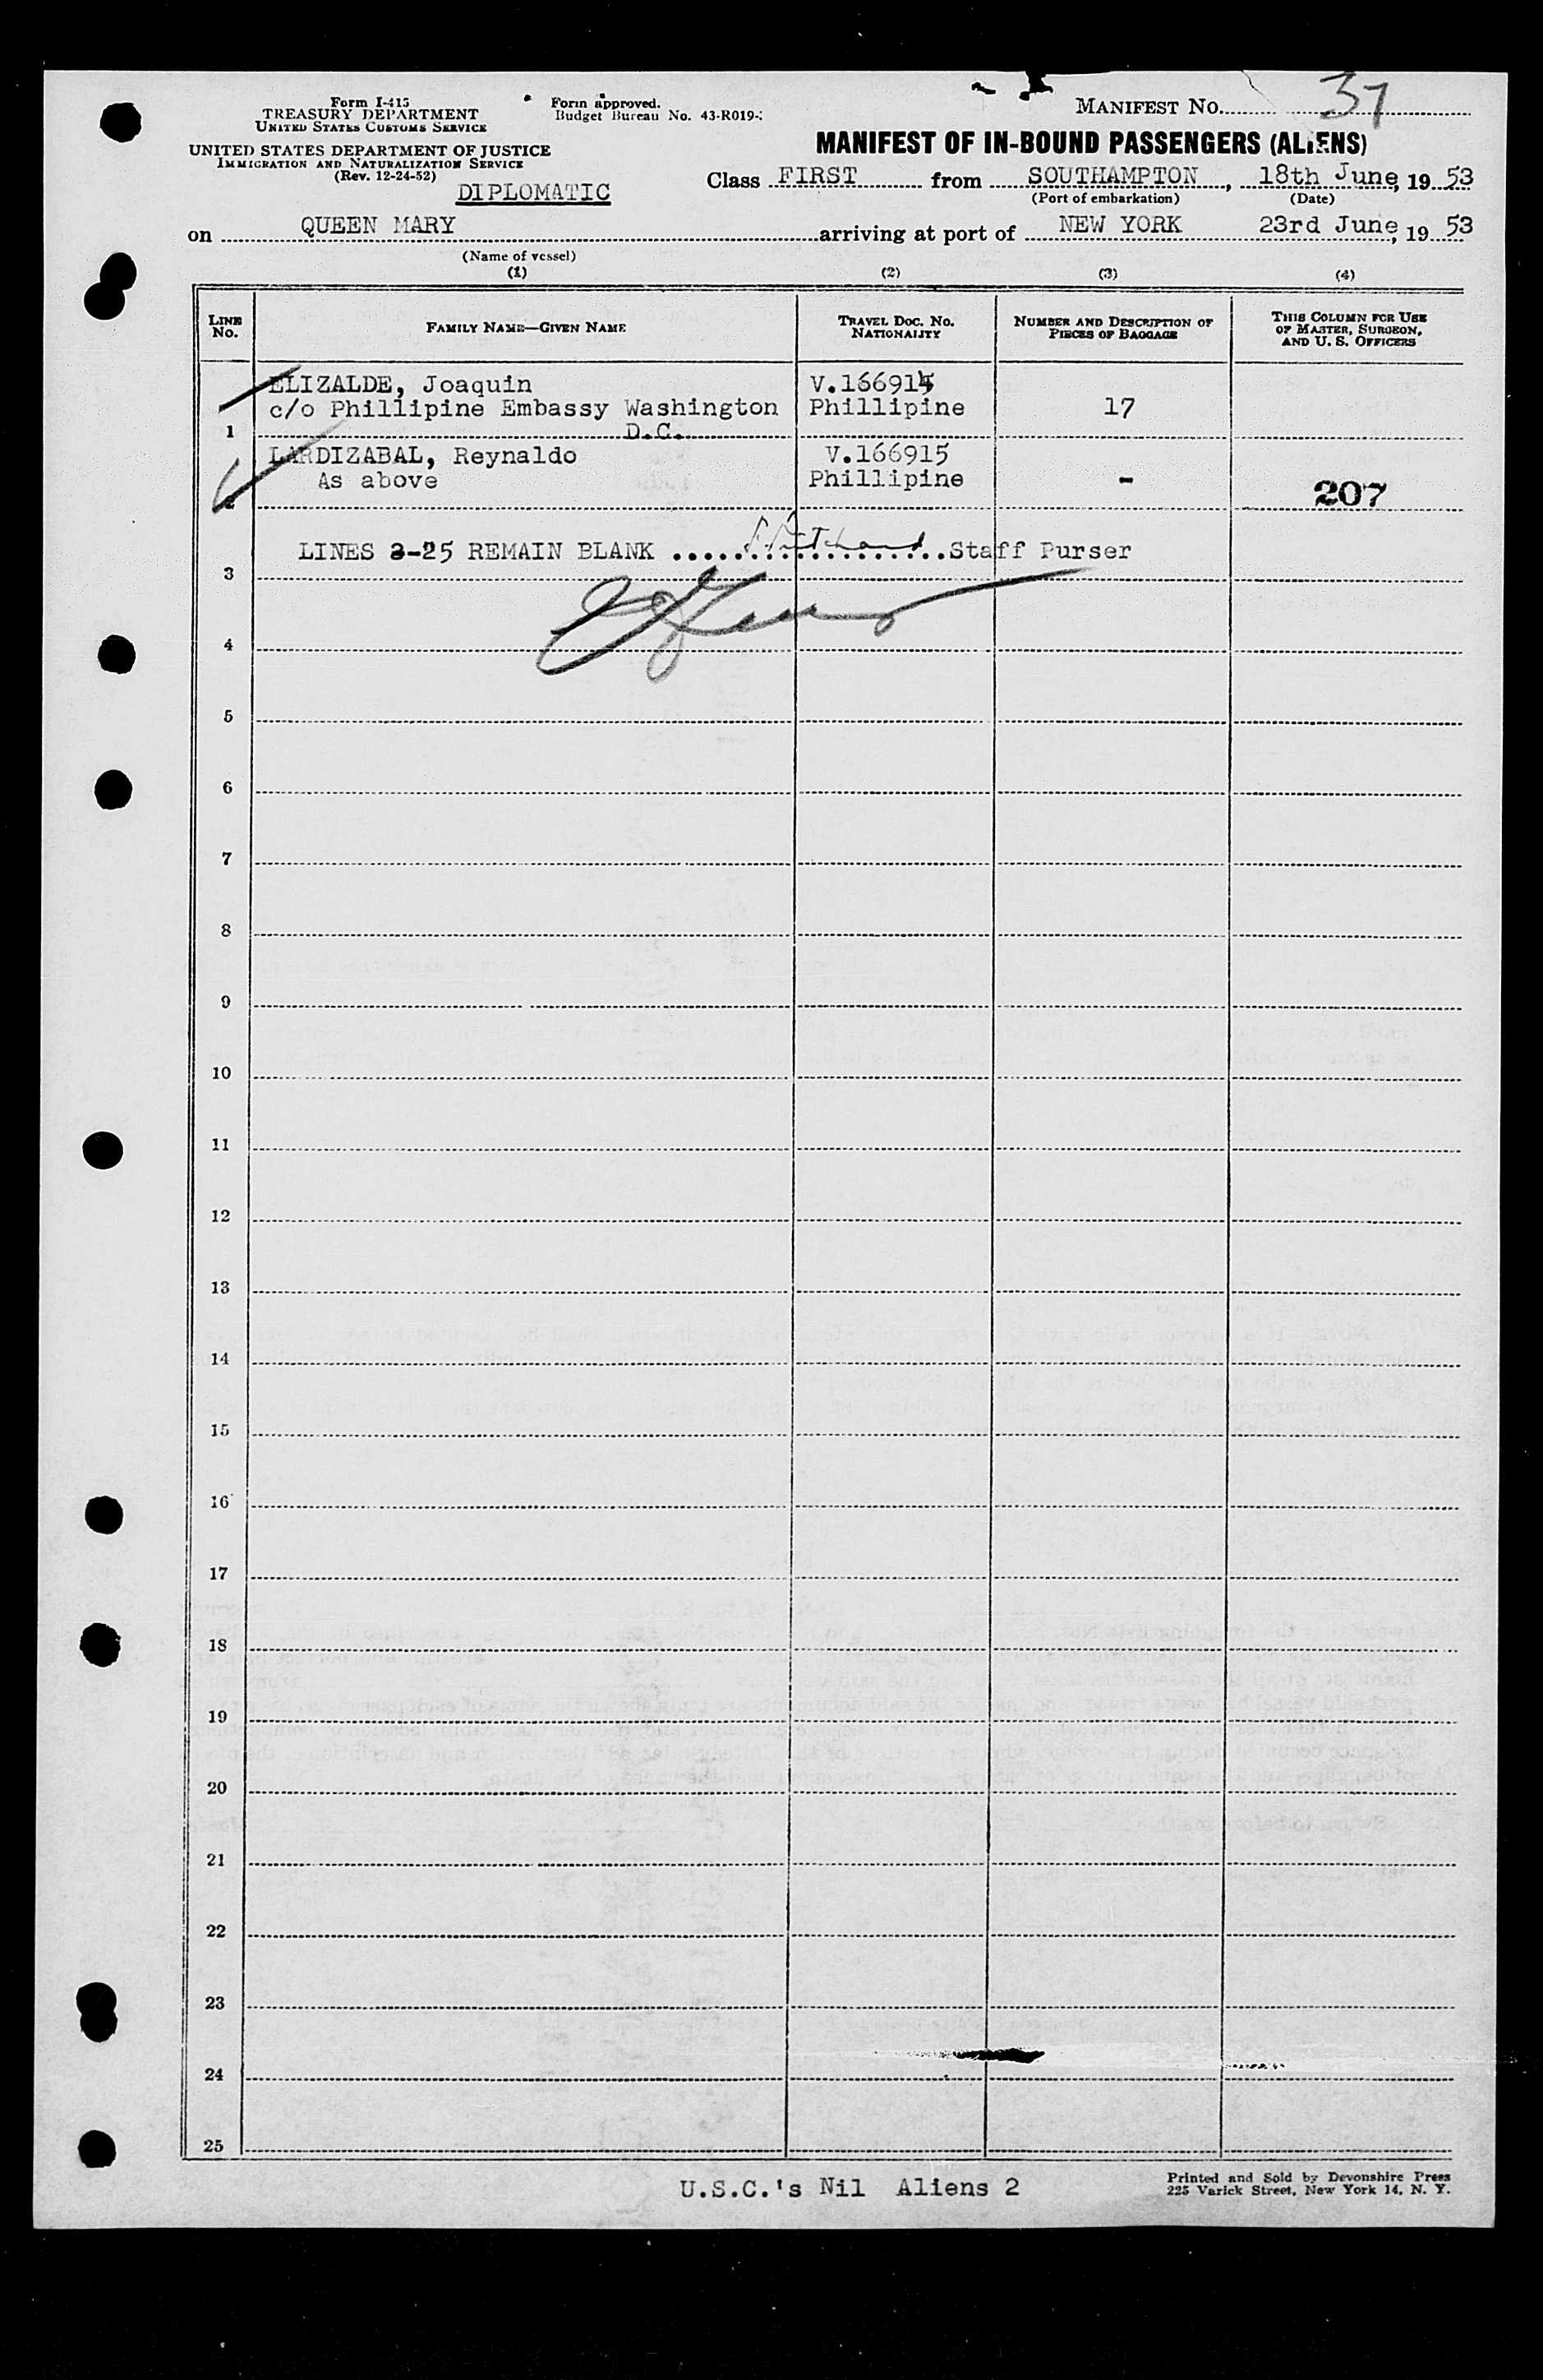 Form I-415
TREASURY DEPARTMENT
UNITED STATES CUSTOMS SERVICE
UNITED STATES DEPARTMENT OF JUSTICE
IMMIGRATION AND NATURALIZATION SERVICE
(Rev. 12-24-52)
DIPLOMATIC
Form approved.
Budget Bureau No. 43-R019-
MANIFEST No. 37
MANIFEST OF IN-BOUND PASSENGERS (ALIENS)
Class FIRST from SOUTHAMPTON, 18th June, 19 53
(Port of embarkation) (Date)
on QUEEN MARY arriving at port of NEW YORK 23rd June, 19 53
(Name of vessel)
(1) (2) (3) (4)
LINE No. FAMILY NAME—GIVEN NAME TRAVEL DOC. NO. NATIONALITY NUMBER AND DESCRIPTION OF PIECES OF BAGGAGE THIS COLUMN FOR USE OF MASTER, SURGEON, AND U. S. OFFICERS
ELIZALDE, Joaquin V.166914
c/o Phillipine Embassy Washington Phillipine 17
1 D.C.
LARDIZABAL, Reynaldo V.166915
As above Phillipine -
2 207
LINES 3-25 REMAIN BLANK Staff Purser
3
4
5
6
7
8
9
10
11
12
13
14
15
16
17
18
19
20
21
22
23
24
25
U.S.C.'s Nil Aliens 2
Printed and Sold by Devonshire Press
225 Varick Street, New York 14, N. Y.